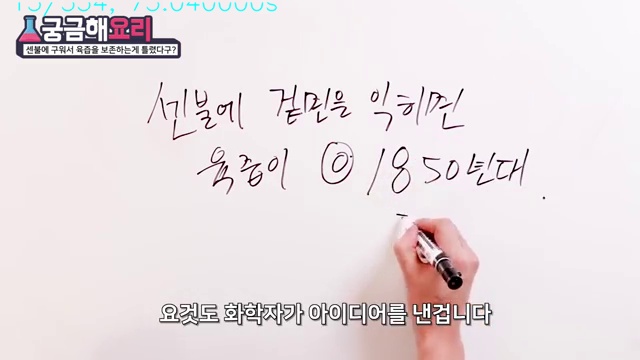 15/334, 75.040000s
궁금해요리
센불에 구워서 육즙을 보존하는게 틀렸다구?
센불에 겉면을 익히면
육즙이 ◎ 1850년대.
요것도 화학자가 아이디어를 낸겁니다